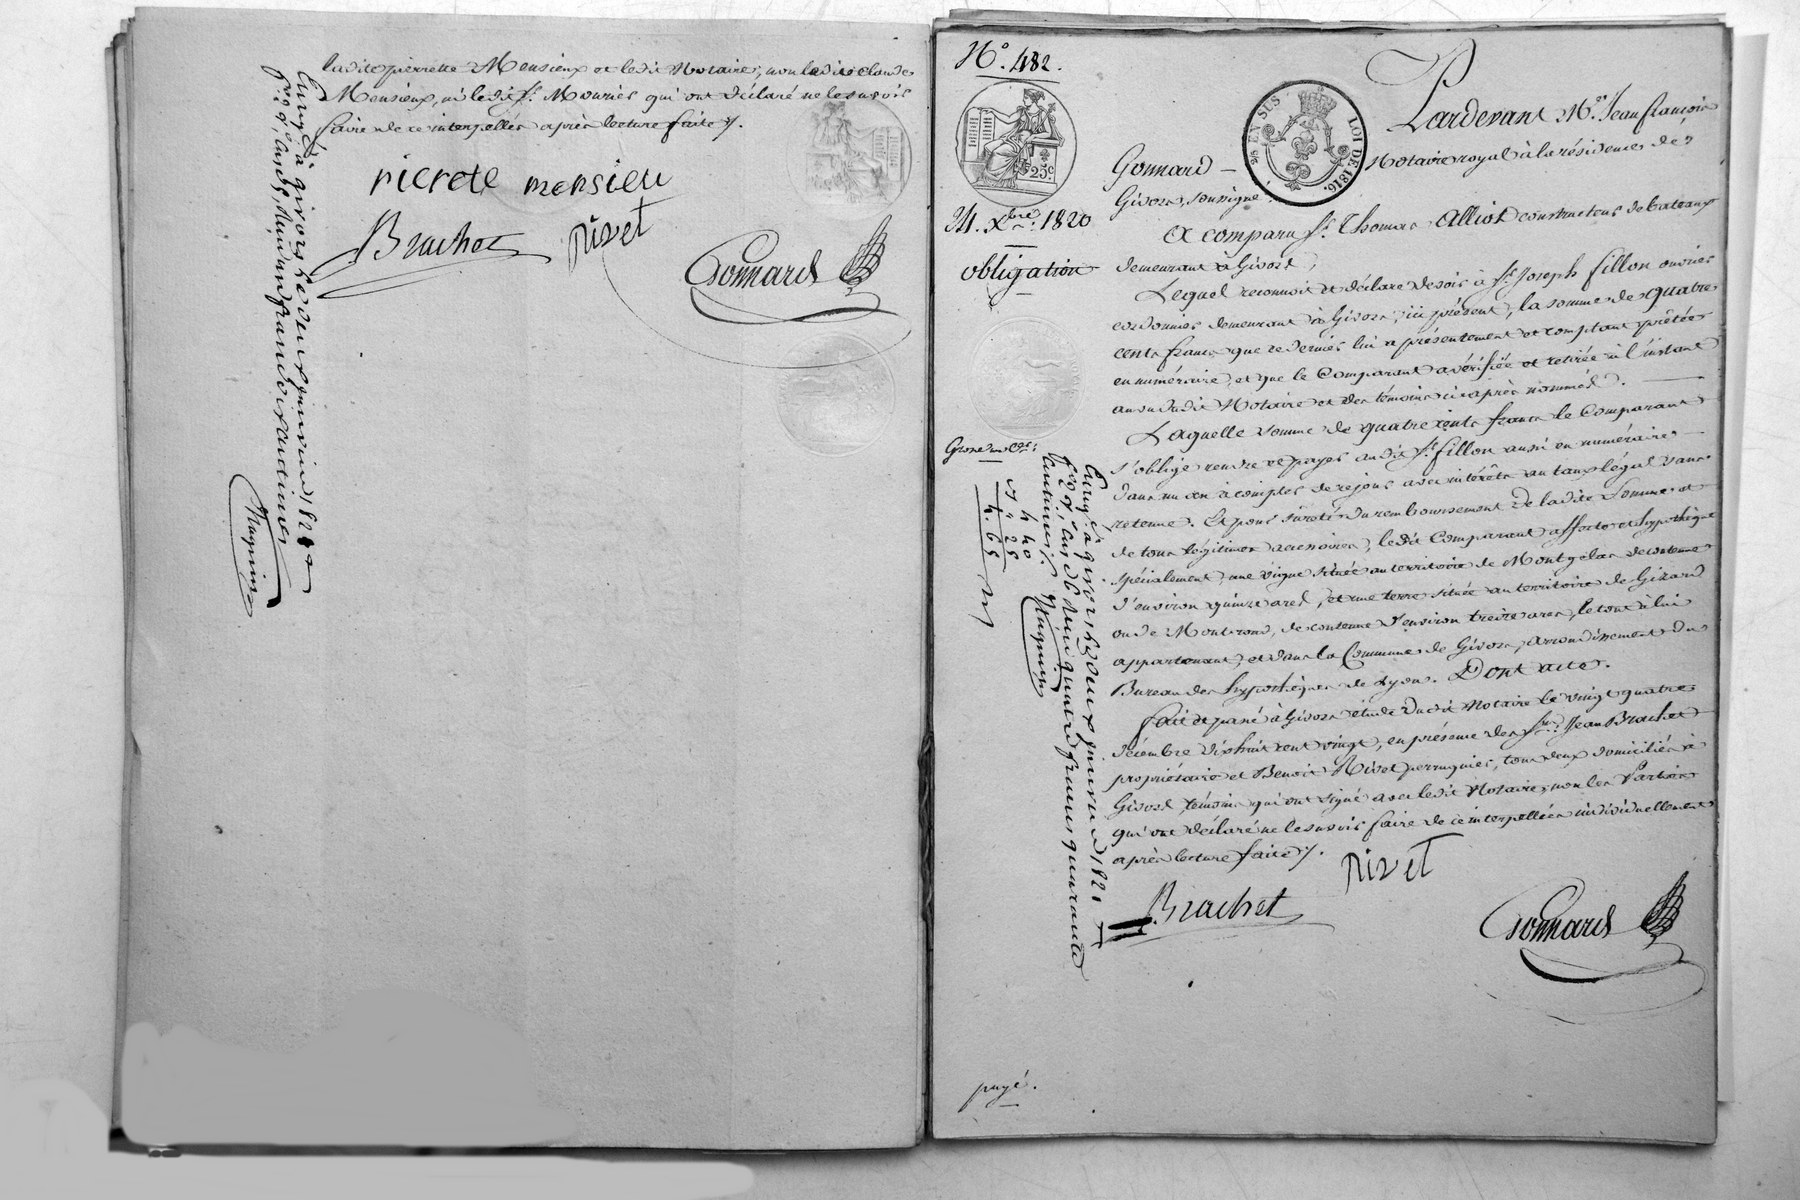 ladite pierrette Mensieux et ledit Notaire, non ledit Claude
Mensieux, ni ledit Sr. Mouriès qui ont déclaré ne le savoir
faire de ce interpellés après lecture faite ./.
pierete mensieu
Brachet
Rivet
Gonnard
Enregé. à givors le deux janvier 1821
deux francs vingt centimes
Magnin
No. 482.
25c
2/5 EN SUS
LOI DE 1816.
24. Xbre. 1820
obligation
Pardevant Me. Jean françois
Gonnard — Notaire royal à la résidence de
Givors, soussigné.
A comparu Sr. Thomas Alliot constructeur de bateaux
demeurant à Givors,
Lequel reconnoit et déclare devoir à Sr. Joseph fillon ouvrier
cordonnier demeurant à Givors, ici présent, la somme de quatre
cents francs que ce dernier lui a présentement et comptant prêtée
en numéraire, et que le Comparant a vérifiée et retirée à l'instant
au vu dudit Notaire et des témoins ci après nommés.
Laquelle somme de quatre cents francs le Comparant
s'oblige rendre et payer audit Sr. fillon aussi en numéraire
dans un an à compter de ce jour avec intérêts au taux légal sans
retenue. Et pour sureté du remboursement de ladite Somme et
de tous légitimes accessoires, ledit Comparant affecte et hypothèque
spécialement, une vigne située au territoire de Montgelas de contenue
d'environ quinze ares, et une terre située au territoire de Gizard
ou de Montrond, de contenue d'environ treize ares, le tout à lui
appartenant, et dans la Commune de Givors, arrondissement du
Bureau des hypothèques de Lyon. Dont acte.
fait et passé à Givors étude dudit Notaire le vingt quatre
décembre dixhuit cent vingt, en présence des Srs. Jean Brachet
propriétaire et Benoit Rivet perruquier, tous deux domiciliés à
Givors, témoins qui ont signé avec ledit Notaire, non les Parties
qui ont déclaré ne le savoir faire de ce interpellées individuellement
après lecture faite ./.
Rivet
Brachet
Gonnard
4 40
25
4. 65
Enregé. à givors le deux janvier 1821
quatre francs quarante
centimes
Magnin
payé.